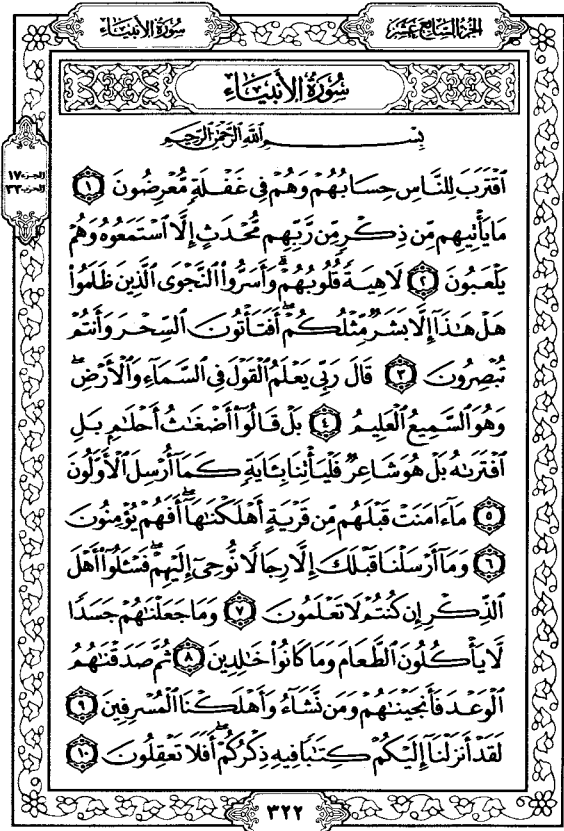 سُورَةُ الأَنبِيَاءِ
الجُزءُ السَّابِعَ عَشَرَ
الجزء ١٧
الحزب ٣٣
سُورَةُ الأَنبِيَاءِ
بِسْمِ ٱللَّهِ ٱلرَّحْمَٰنِ ٱلرَّحِيمِ
ٱقْتَرَبَ لِلنَّاسِ حِسَابُهُمْ وَهُمْ فِى غَفْلَةٍ مُّعْرِضُونَ ١
مَا يَأْتِيهِم مِّن ذِكْرٍ مِّن رَّبِّهِم مُّحْدَثٍ إِلَّا ٱسْتَمَعُوهُ وَهُمْ
يَلْعَبُونَ ٢ لَاهِيَةً قُلُوبُهُمْ ۗ وَأَسَرُّوا۟ ٱلنَّجْوَى ٱلَّذِينَ ظَلَمُوا۟
هَلْ هَٰذَآ إِلَّا بَشَرٌ مِّثْلُكُمْ ۖ أَفَتَأْتُونَ ٱلسِّحْرَ وَأَنتُمْ
تُبْصِرُونَ ٣ قَالَ رَبِّى يَعْلَمُ ٱلْقَوْلَ فِى ٱلسَّمَآءِ وَٱلْأَرْضِ ۖ
وَهُوَ ٱلسَّمِيعُ ٱلْعَلِيمُ ٤ بَلْ قَالُوٓا۟ أَضْغَٰثُ أَحْلَٰمٍ بَلِ
ٱفْتَرَىٰهُ بَلْ هُوَ شَاعِرٌ فَلْيَأْتِنَا بِـَٔايَةٍ كَمَآ أُرْسِلَ ٱلْأَوَّلُونَ
٥ مَآ ءَامَنَتْ قَبْلَهُم مِّن قَرْيَةٍ أَهْلَكْنَٰهَآ ۖ أَفَهُمْ يُؤْمِنُونَ
٦ وَمَآ أَرْسَلْنَا قَبْلَكَ إِلَّا رِجَالًا نُّوحِىٓ إِلَيْهِمْ ۖ فَسْـَٔلُوٓا۟ أَهْلَ
ٱلذِّكْرِ إِن كُنتُمْ لَا تَعْلَمُونَ ٧ وَمَا جَعَلْنَٰهُمْ جَسَدًا
لَّا يَأْكُلُونَ ٱلطَّعَامَ وَمَا كَانُوا۟ خَٰلِدِينَ ٨ ثُمَّ صَدَقْنَٰهُمُ
ٱلْوَعْدَ فَأَنجَيْنَٰهُمْ وَمَن نَّشَآءُ وَأَهْلَكْنَا ٱلْمُسْرِفِينَ ٩
لَقَدْ أَنزَلْنَآ إِلَيْكُمْ كِتَٰبًا فِيهِ ذِكْرُكُمْ ۖ أَفَلَا تَعْقِلُونَ ١٠
٣٢٢